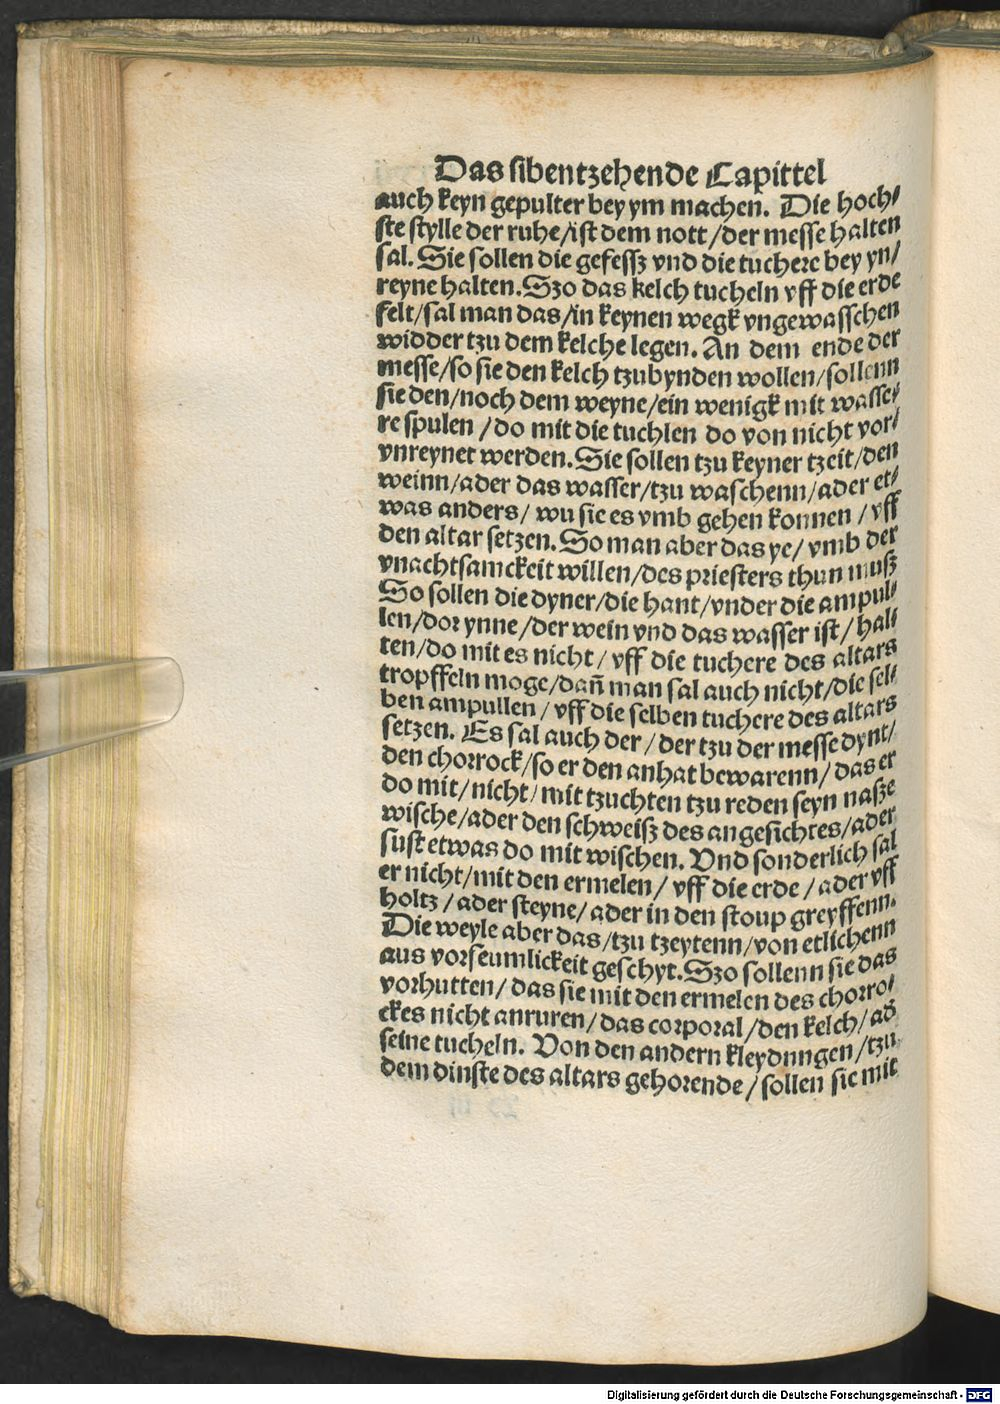 Das sibentzehende Capittel
auch keyn gepulter bey ym machen. Die hoch/
ste stylle der ruhe/ist dem nott/der messe halten
sal. Sie sollen die gefessz vnd die tuchere bey yn/
reyne halten. Szo das kelch tucheln vff die erde
felt/sal man das/in keynen wegk vngewasschen
widder tzu dem kelche legen. An dem ende der
messe/so sie den kelch tzubynden wollen/sollenn
sie den/noch dem weyne/ein wenigk mit wasse/
re spulen/do mit die tuchlen do von nicht vor/
vnreynet werden. Sie sollen tzu keyner tzeit/den
weinn/ader das wasser/tzu waschenn/ader et/
was anders/wu sie es vmb gehen konnen/vff
den altar setzen. So man aber das ye/vmb der
vnachtsamckeit willen/des priesters thun musz
So sollen die dyner/die hant/vnder die ampul/
len/dor ynne/der wein vnd das wasser ist/hal/
ten/do mit es nicht/vff die tuchere des altars
tropffeln moge/dañ man sal auch nicht/die sel/
ben ampullen/vff die selben tuchere des altars
setzen. Es sal auch der/der tzu der messe dynt/
den chorrock/so er den anhat bewarenn/das er
do mit/nicht/mit tzuchten tzu reden seyn nasze
wische/ader den schweisz des angesichtes/ader
sust etwas do mit wischen. Vnd sonderlich sal
er nicht/mit den ermelen/vff die erde/ader vff
holtz/ader steyne/ader in den stoup greyffenn.
Die weyle aber das/tzu tzeytenn/von etlichenn
aus vorseumlickeit geschyt. Szo sollenn sie das
vorhutten/das sie mit den ermelen des chorro/
ckes nicht anruren/das corporal/den kelch/ad̄
seine tucheln. Von den andern kleydungen/tzu
dem dinste des altars gehorende/sollen sie mit
Digitalisierung gefördert durch die Deutsche Forschungsgemeinschaft - DFG